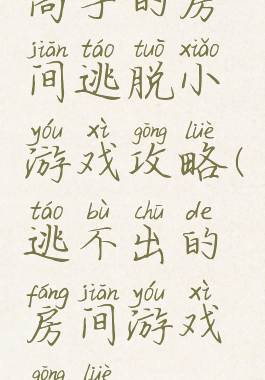 高手的房
jiān táo tuō xiǎo
间逃脱小
yóu xì gōng lüè
游戏攻略(
táo bù chū de
逃不出的
fáng jiān yóu xì
房间游戏
gōng lüè